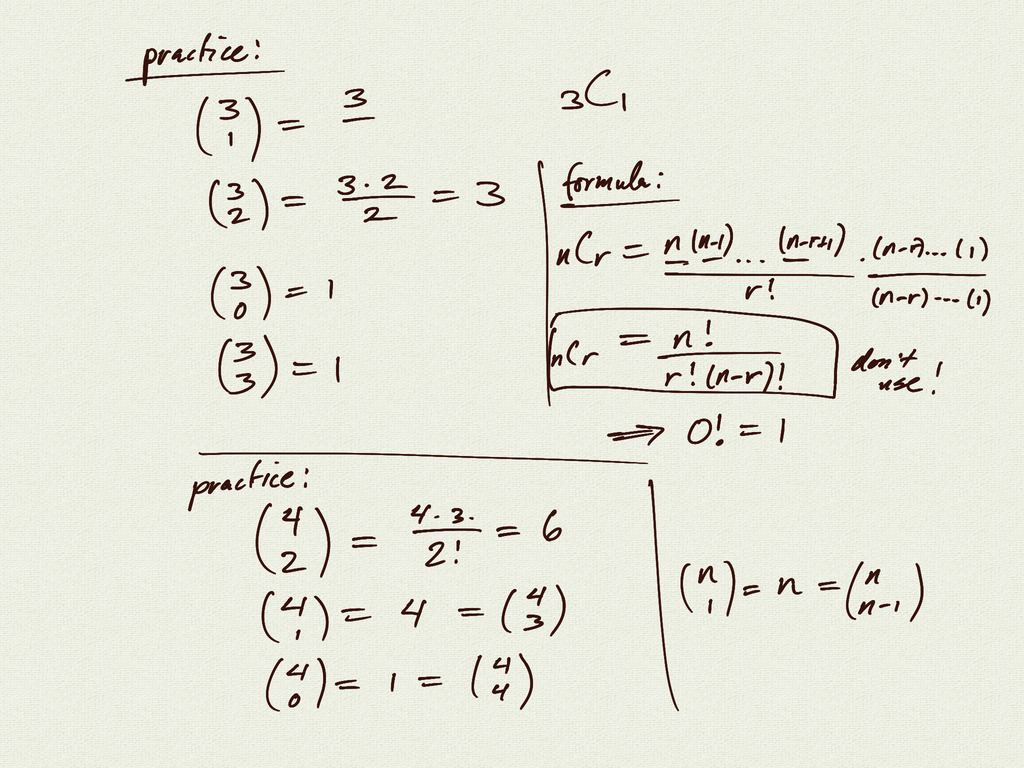 practice:
(3 1) = 3
₃C₁
(3 2) = 3·2/2 = 3
(3 0) = 1
(3 3) = 1
formula:
nCr = n(n-1)...(n-r+1)/r! · (n-r)...(1)/(n-r)...(1)
nCr = n!/r!(n-r)!
don't
use!
⟹ 0! = 1
practice:
(4 2) = 4·3·/2! = 6
(4 1) = 4 = (4 3)
(4 0) = 1 = (4 4)
(n 1) = n = (n n-1)